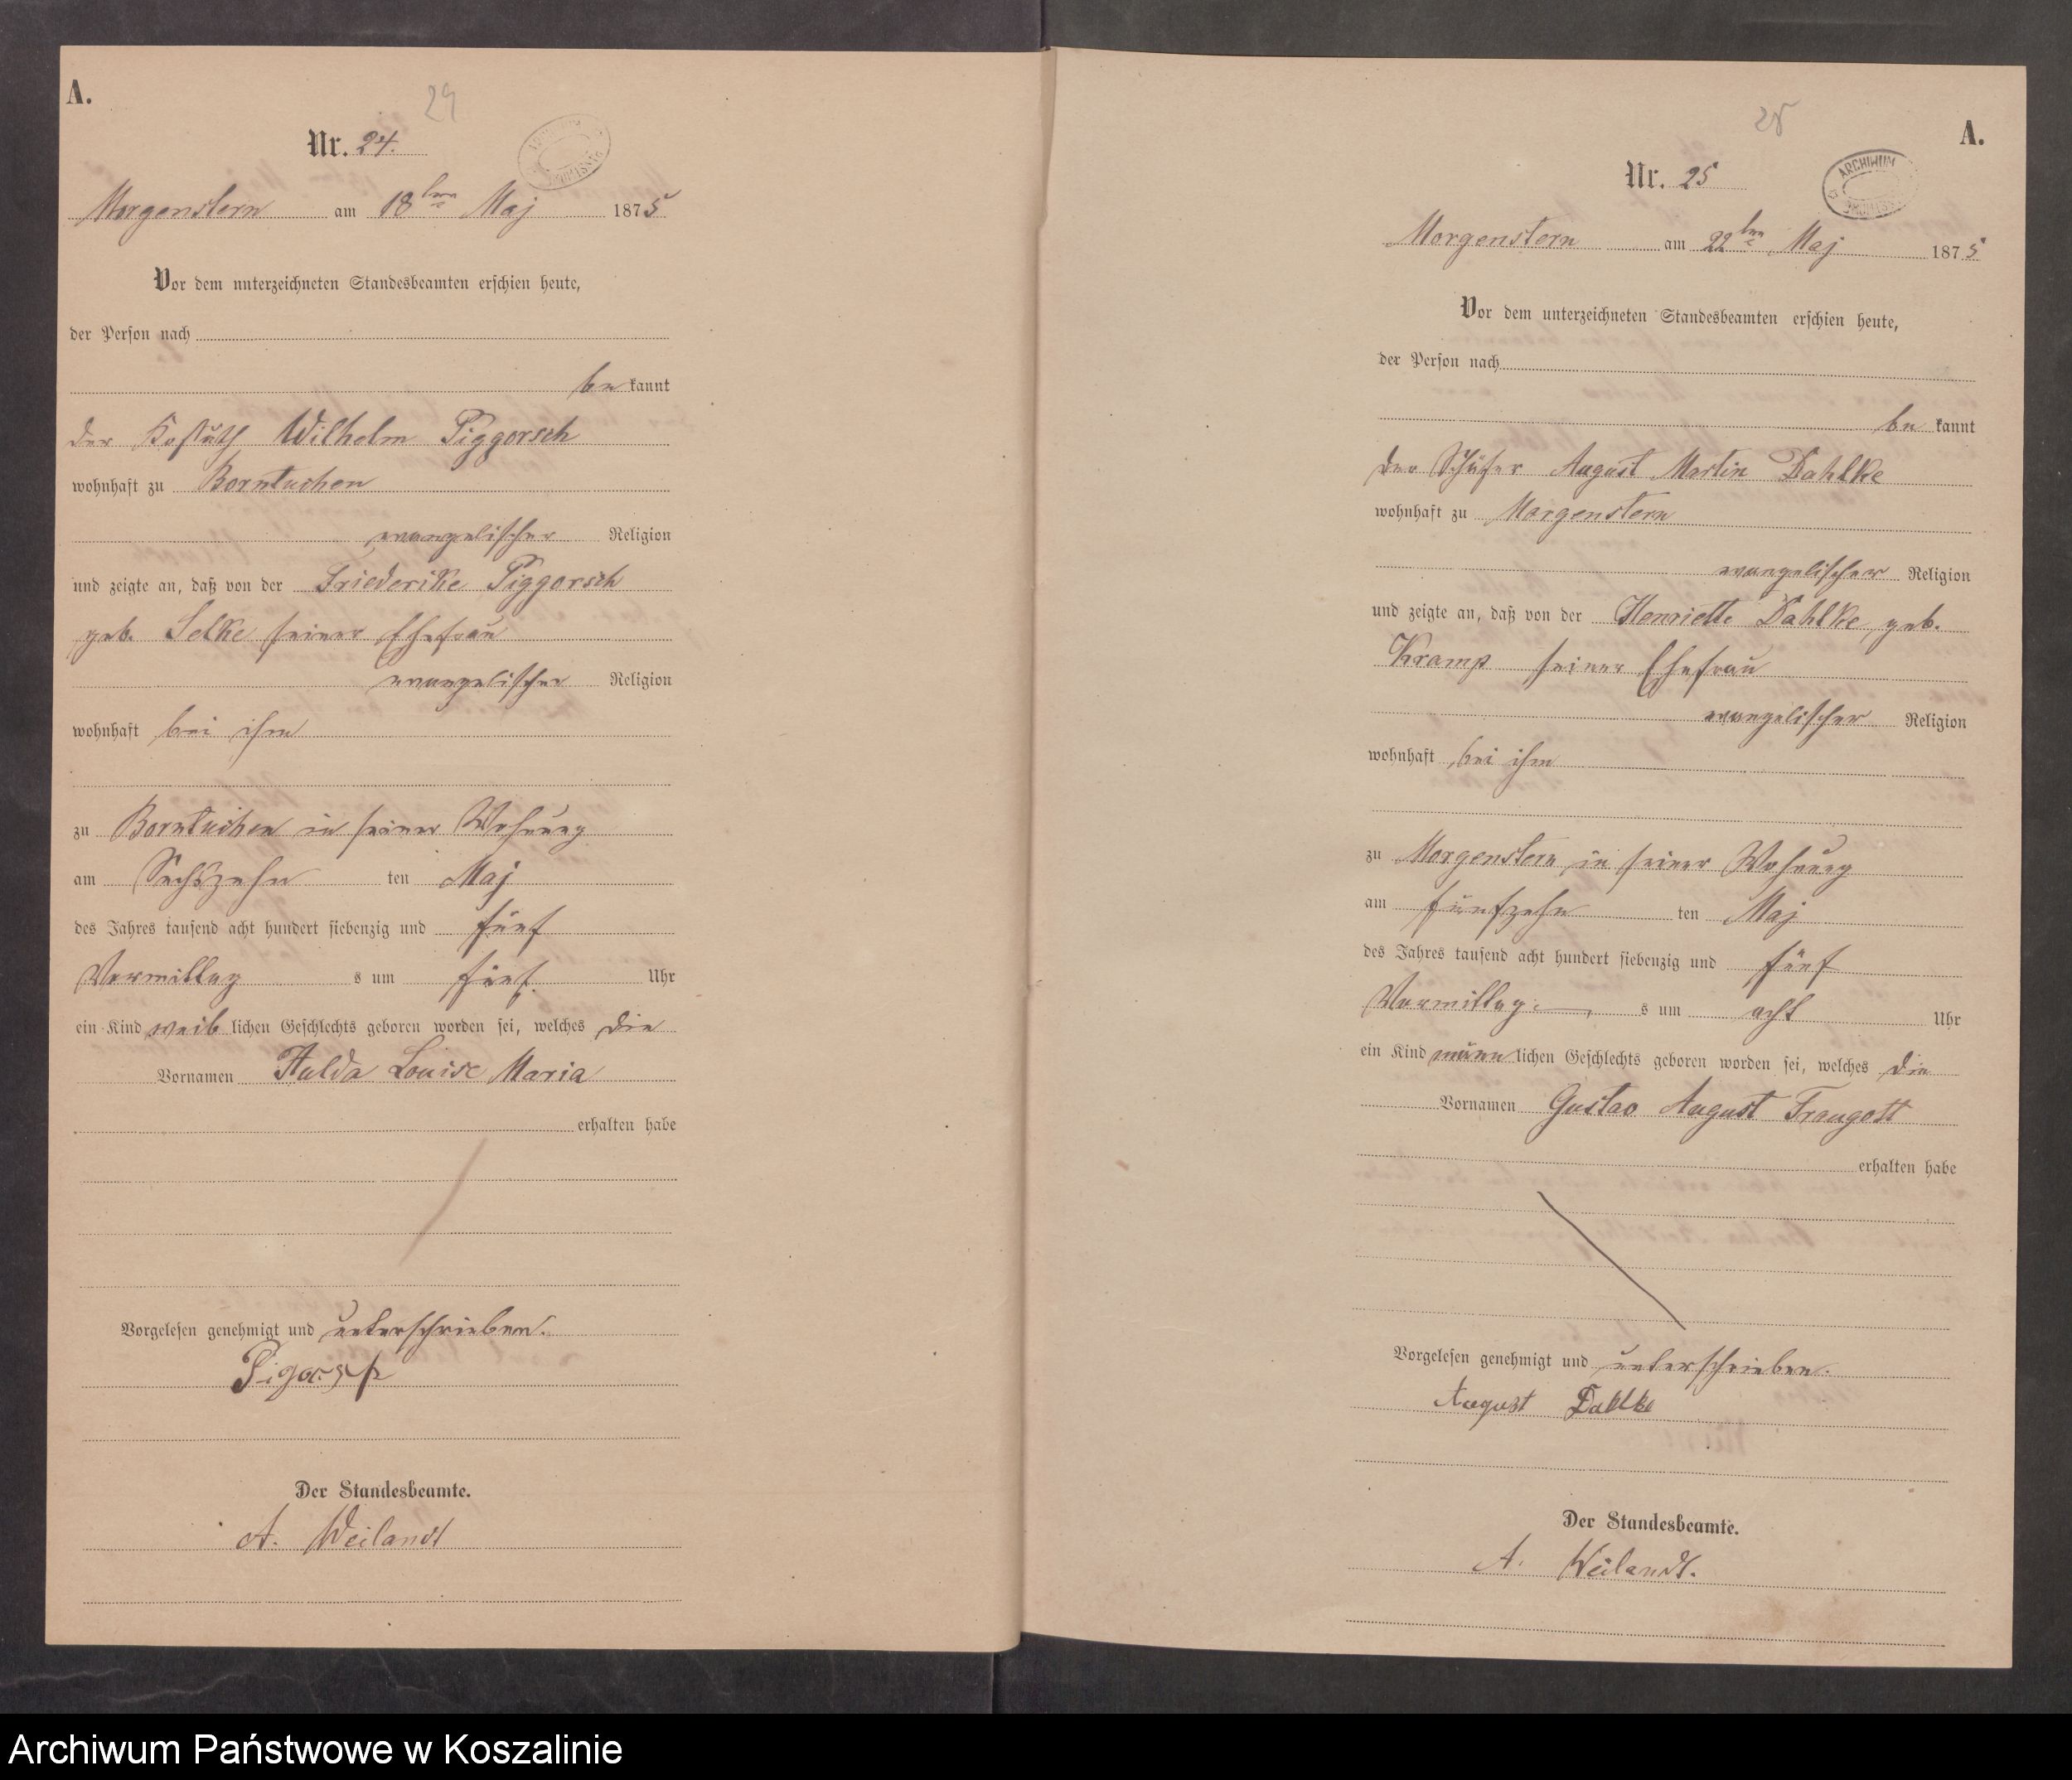 A.
29
Nr. 24.
Morgenstern am 18ten Maj 1875
Vor dem unterzeichneten Standesbeamten erschien heute,
der Person nach
be kannt
der Wilhelm Piggorsch
wohnhaft zu Borntuchen
evangelischer Religion
und zeigte an, daß von der Friederike Piggorsch
geb. Selke seiner Ehefrau
evangelischer Religion
wohnhaft bei ihm
zu Borntuchen in seiner Wohnung
am Sechszehn ten Maj
des Jahres tausend acht hundert siebenzig und fünf
Vormittag s um fünf Uhr
ein Kind weib lichen Geschlechts geboren worden sei, welches die
Vornamen Hulda Louise Maria
erhalten habe
Vorgelesen genehmigt und unterschrieben.
Der Standesbeamte.
A. Weilandt
A.
25
Nr. 25
ARCHIWUM
Morgenstern am 22ten Maj 1875
Vor dem unterzeichneten Standesbeamten erschien heute,
der Person nach
be kannt
der Schäfer August Martin Dahlke
wohnhaft zu Morgenstern
evangelischer Religion
und zeigte an, daß von der Henriette Dahlke, geb.
Kramp seiner Ehefrau
evangelischer Religion
wohnhaft bei ihm
zu Morgenstern in seiner Wohnung
am fünfzehn ten Maj
des Jahres tausend acht hundert siebenzig und fünf
Vormittag s um acht Uhr
ein Kind männ lichen Geschlechts geboren worden sei, welches die
Vornamen Gustav August Traugott
erhalten habe
Vorgelesen genehmigt und unterschrieben.
August Dahlke
Der Standesbeamte.
A. Weilandt.
Archiwum Państwowe w Koszalinie